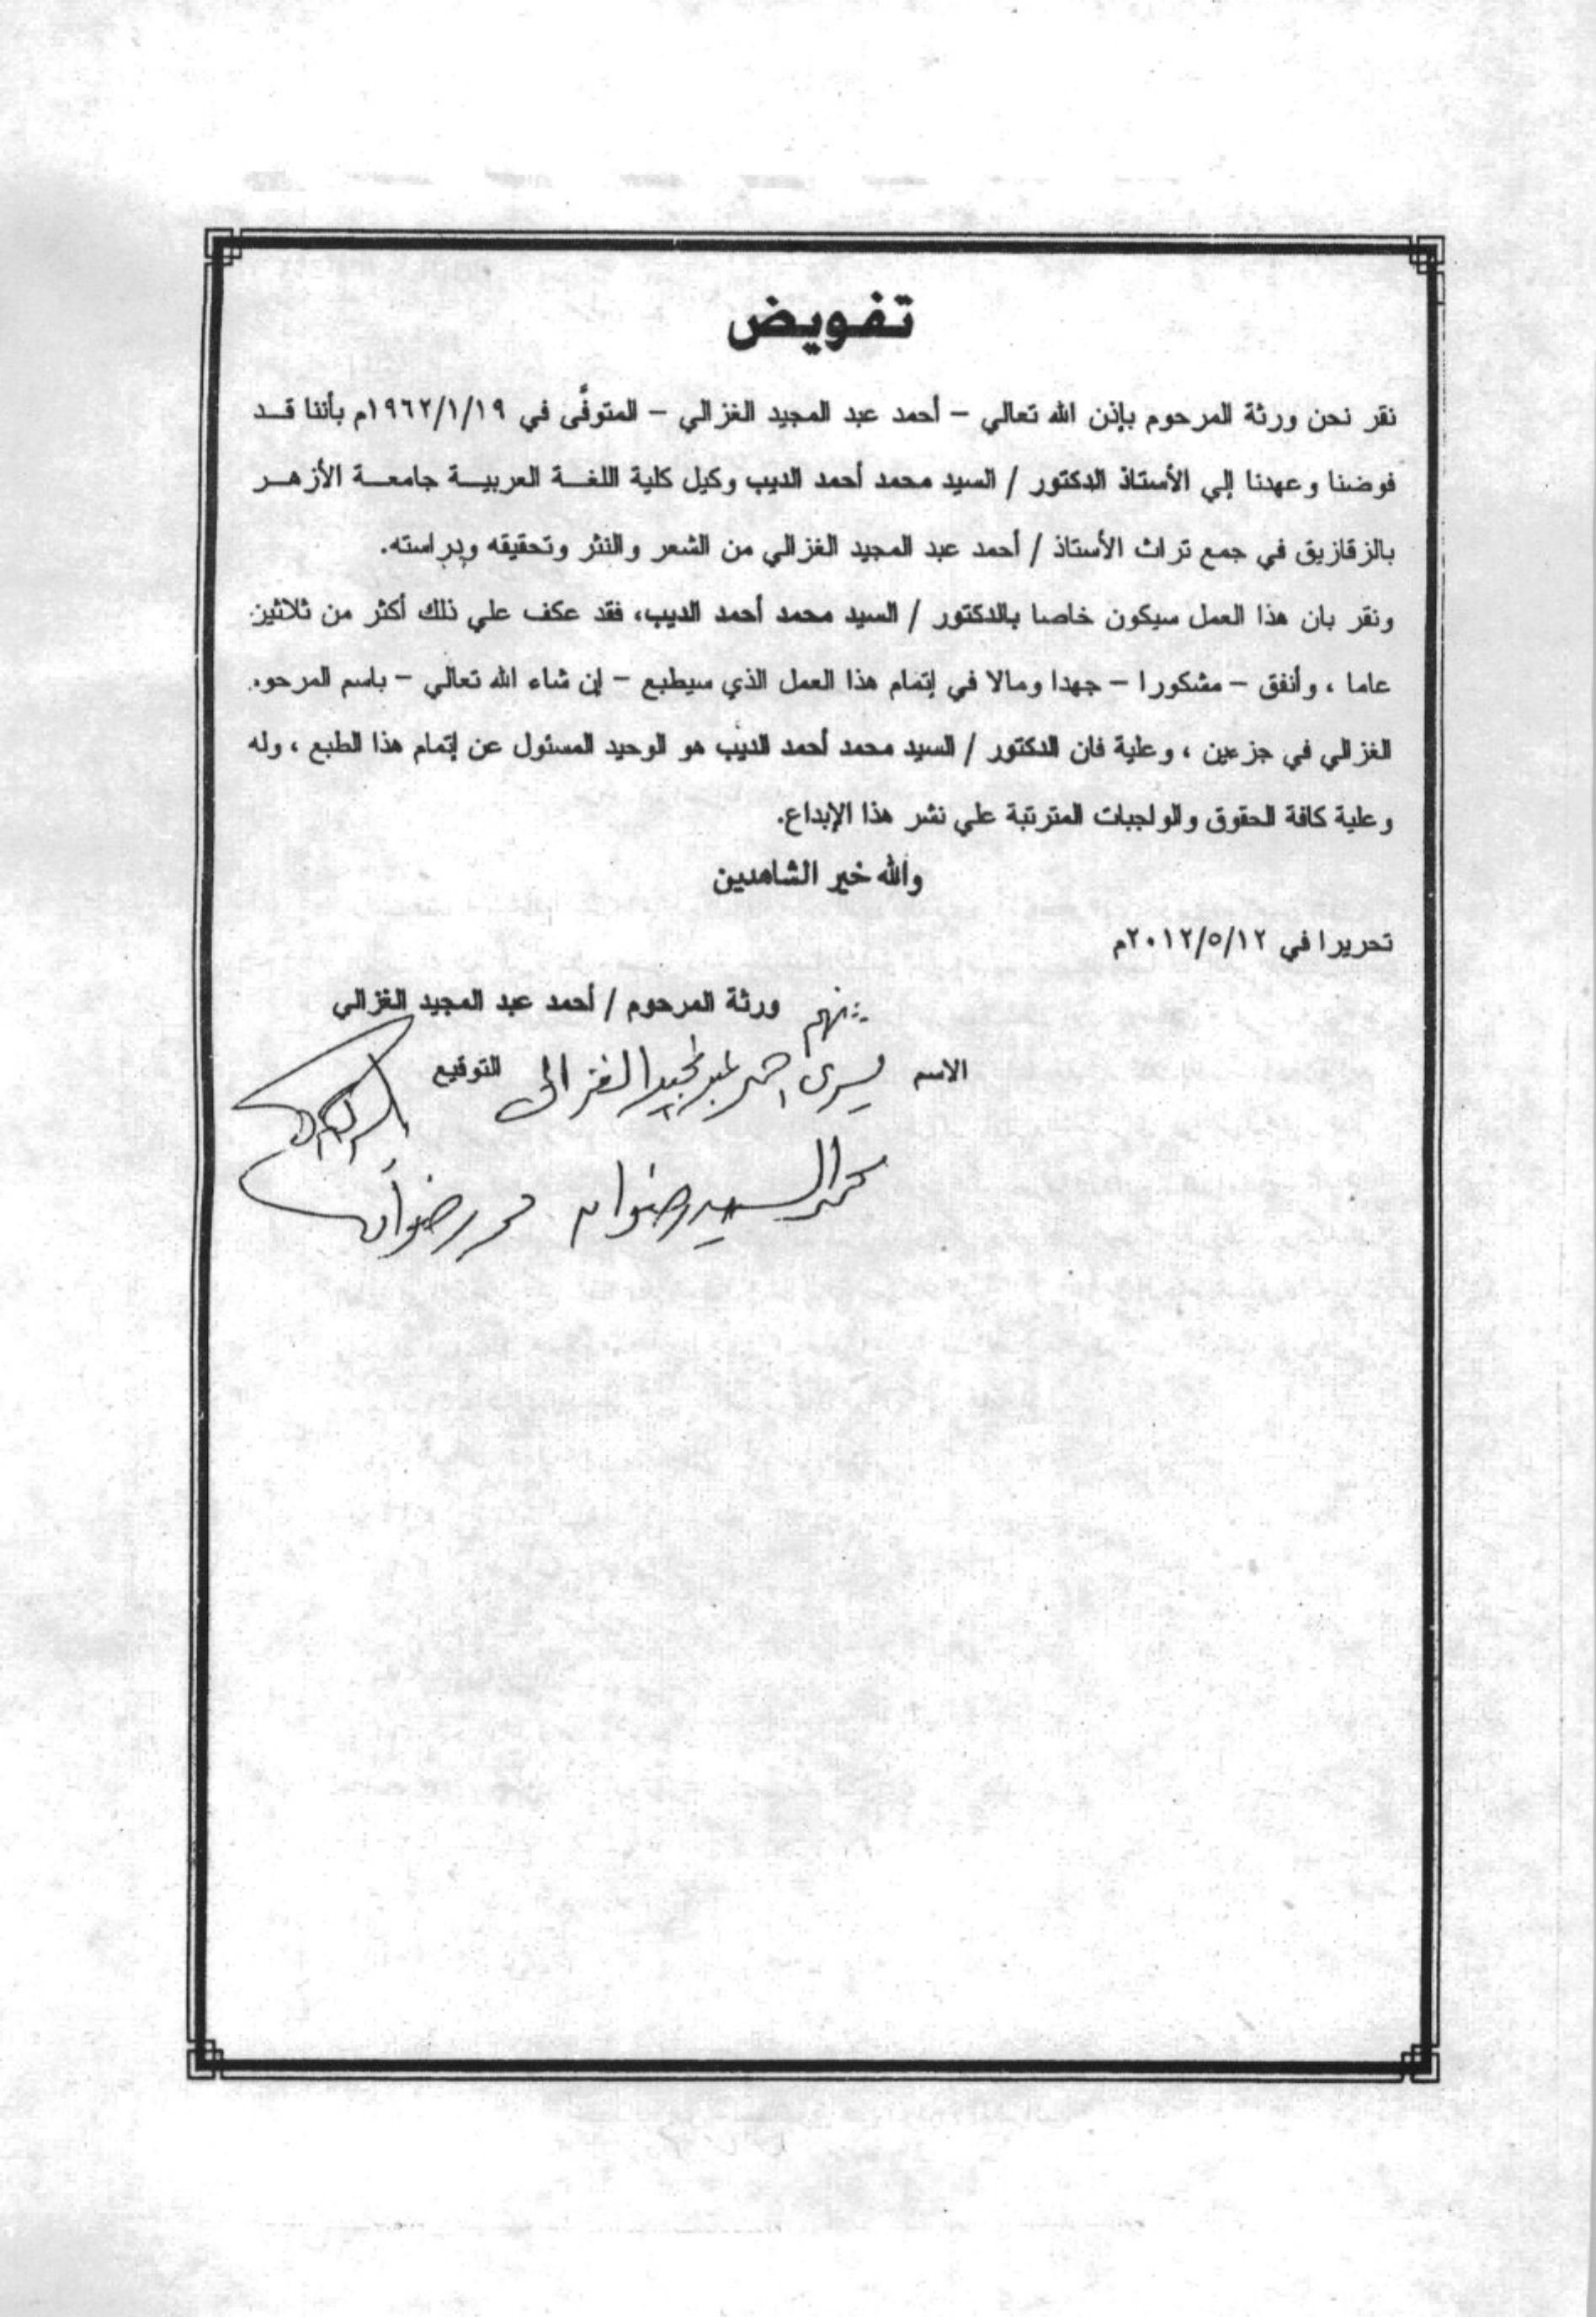 تفويض
نقر نحن ورثة المرحوم بإذن الله تعالي - أحمد عبد المجيد الغزالي - المتوفَّى في ١٩٦٢/١/١٩م بأننا قد
فوضنا وعهدنا إلي الأستاذ الدكتور / السيد محمد أحمد الديب وكيل كلية اللغة العربية جامعة الأزهر
بالزقازيق في جمع تراث الأستاذ / أحمد عبد المجيد الغزالي من الشعر والنثر وتحقيقه ودراسته.
ونقر بان هذا العمل سيكون خاصا بالدكتور / السيد محمد أحمد الديب، فقد عكف علي ذلك أكثر من ثلاثين
عاما ، وأنفق - مشكورا - جهدا ومالا في إتمام هذا العمل الذي سيطبع - إن شاء الله تعالي - باسم المرحوم
الغزالي في جزعين ، وعلية فان الدكتور / السيد محمد أحمد الديب هو الوحيد المسئول عن إتمام هذا الطبع ، وله
وعلية كافة الحقوق والواجبات المترتبة علي نشر هذا الإبداع.
والله خير الشاهدين
تحريرا في ٢٠١٢/٥/١٢م
ورثة المرحوم / أحمد عبد المجيد الغزالى
الاسم يسرى احمد عبد المجيد الغزالى التوقيع
محمد السيد رضوان محمد رضوان